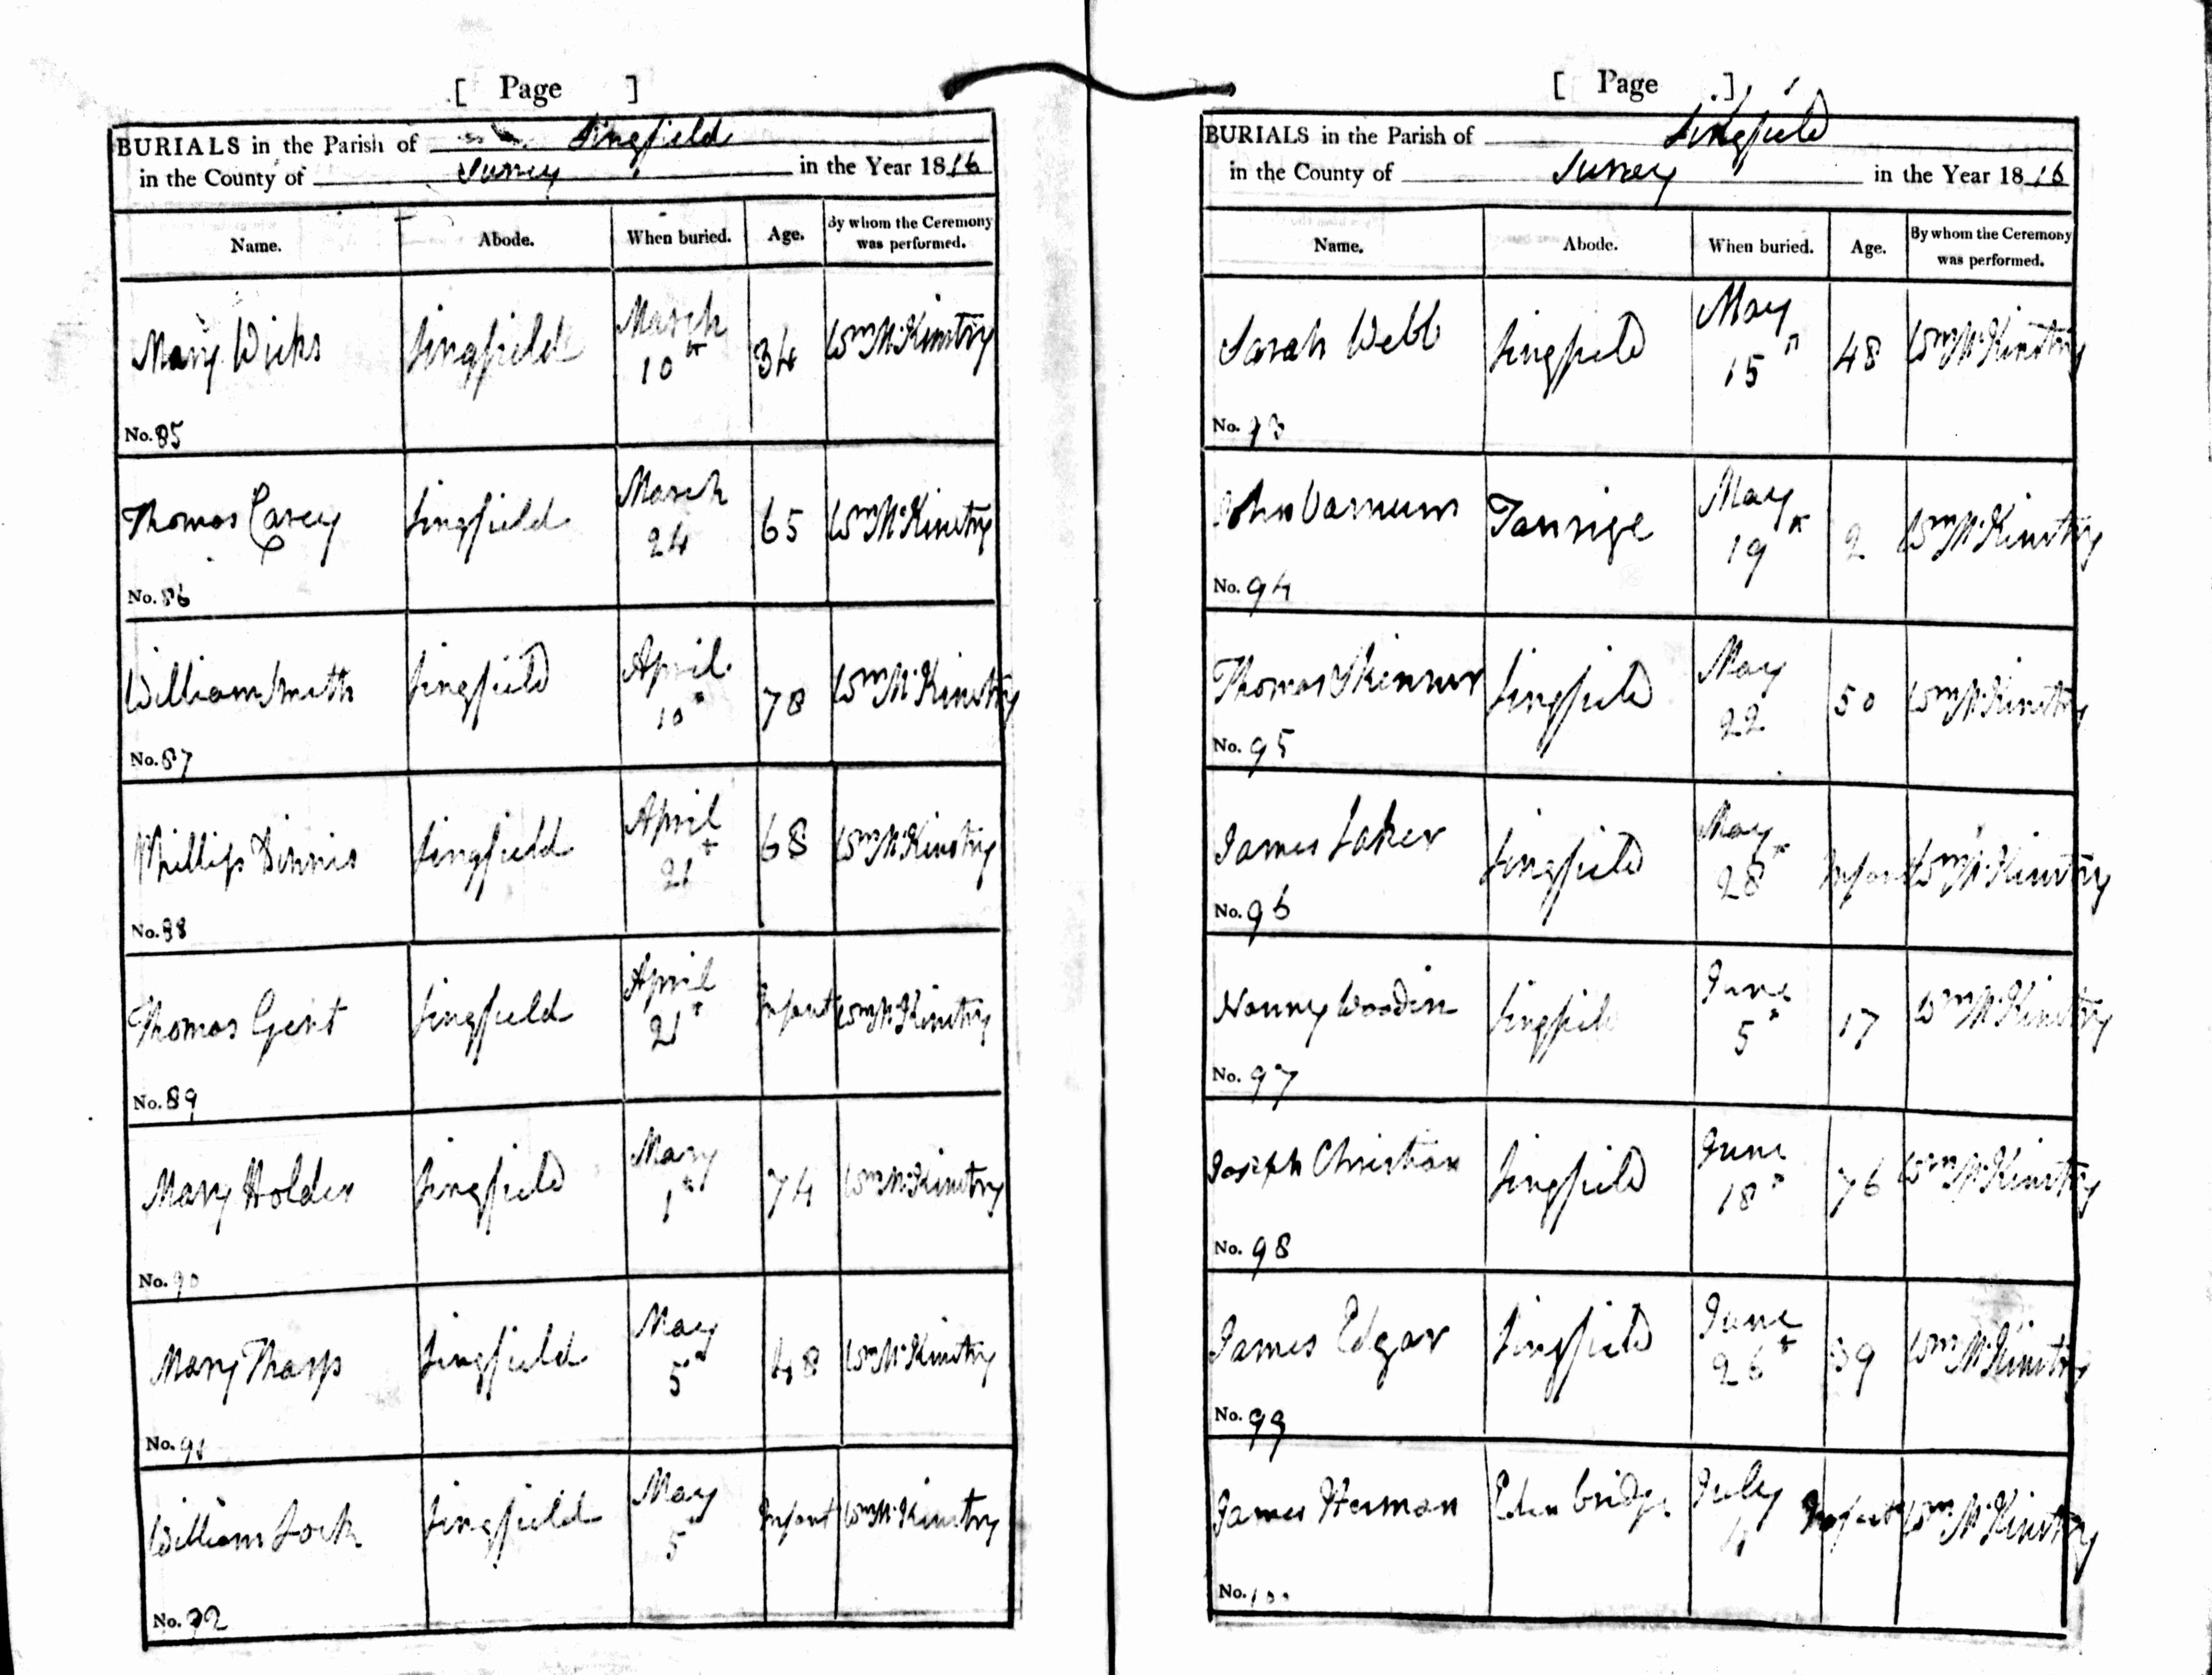 [ Page ]
BURIALS in the Parish of Lingfield
in the County of Surrey in the Year 1816
Name. Abode. When buried. Age. By whom the Ceremony was performed.
Mary Wicks Lingfield March 10th 34 Wm McKinstry
No. 85
Thomas Carey Lingfield March 24 65 Wm McKinstry
No. 86
William Smith Lingfield April 10th 78 Wm McKinstry
No. 87
Phillip Dinnis Lingfield April 21st 68 Wm McKinstry
No. 88
Thomas Gent Lingfield April 21st Infant Wm McKinstry
No. 89
Mary Holder Lingfield May 1st 74 Wm McKinstry
No. 90
Mary Tharp Lingfield May 5th 48 Wm McKinstry
No. 91
William Lock Lingfield May 5th Infant Wm McKinstry
No. 92
[ Page ]
BURIALS in the Parish of Lingfield
in the County of Surrey in the Year 1816
Name. Abode. When buried. Age. By whom the Ceremony was performed.
Sarah Webb Lingfield May 15th 48 Wm McKinstry
No. 93
John Varnum Tanrige May 19th 2 Wm McKinstry
No. 94
Thomas Skinner Lingfield May 22 50 Wm McKinstry
No. 95
James Laker Lingfield May 28th Infant Wm McKinstry
No. 96
Nanny Woodin Lingfield June 5th 17 Wm McKinstry
No. 97
Joseph Christian Lingfield June 18th 76 Wm McKinstry
No. 98
James Edgar Lingfield June 26th 39 Wm McKinstry
No. 99
James Heman Edenbridge July 4 Infant Wm McKinstry
No. 100